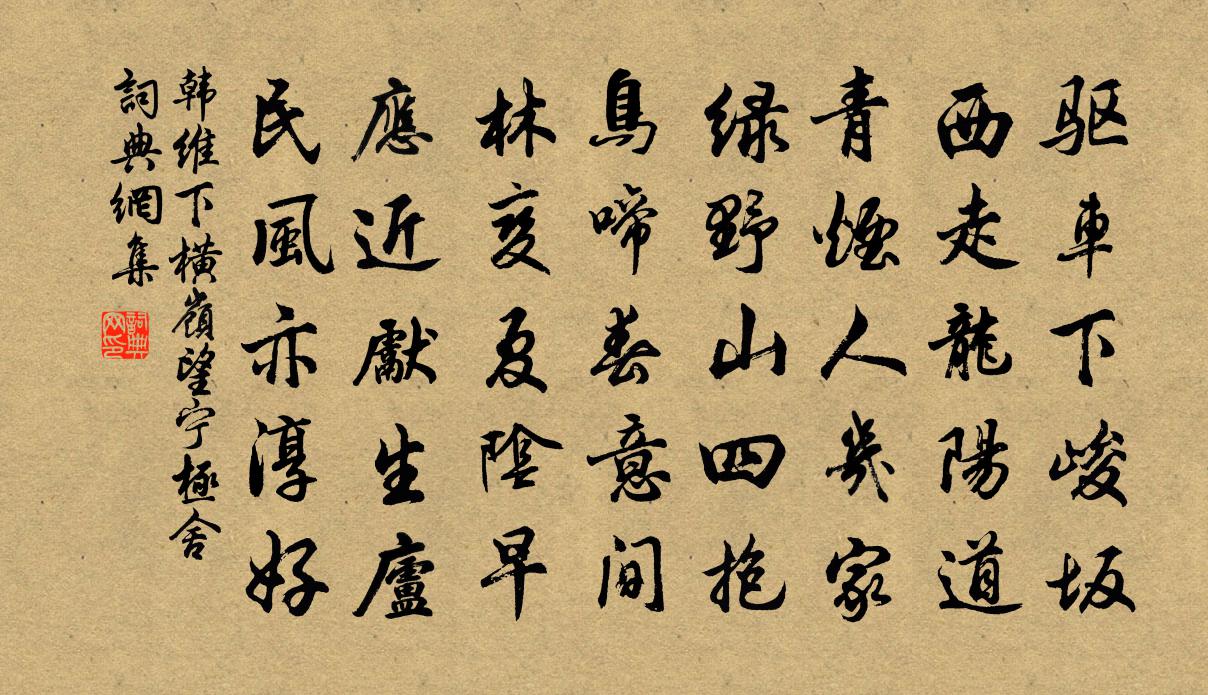 驱車下峻坂
西走龍陽道
青煙人幾家
绿野山四抱
鳥啼春意间
林变夏陰早
應近獻生廬
民風亦淳好
韩维下横嶺望宁極舍
詞典網集
詞典网印